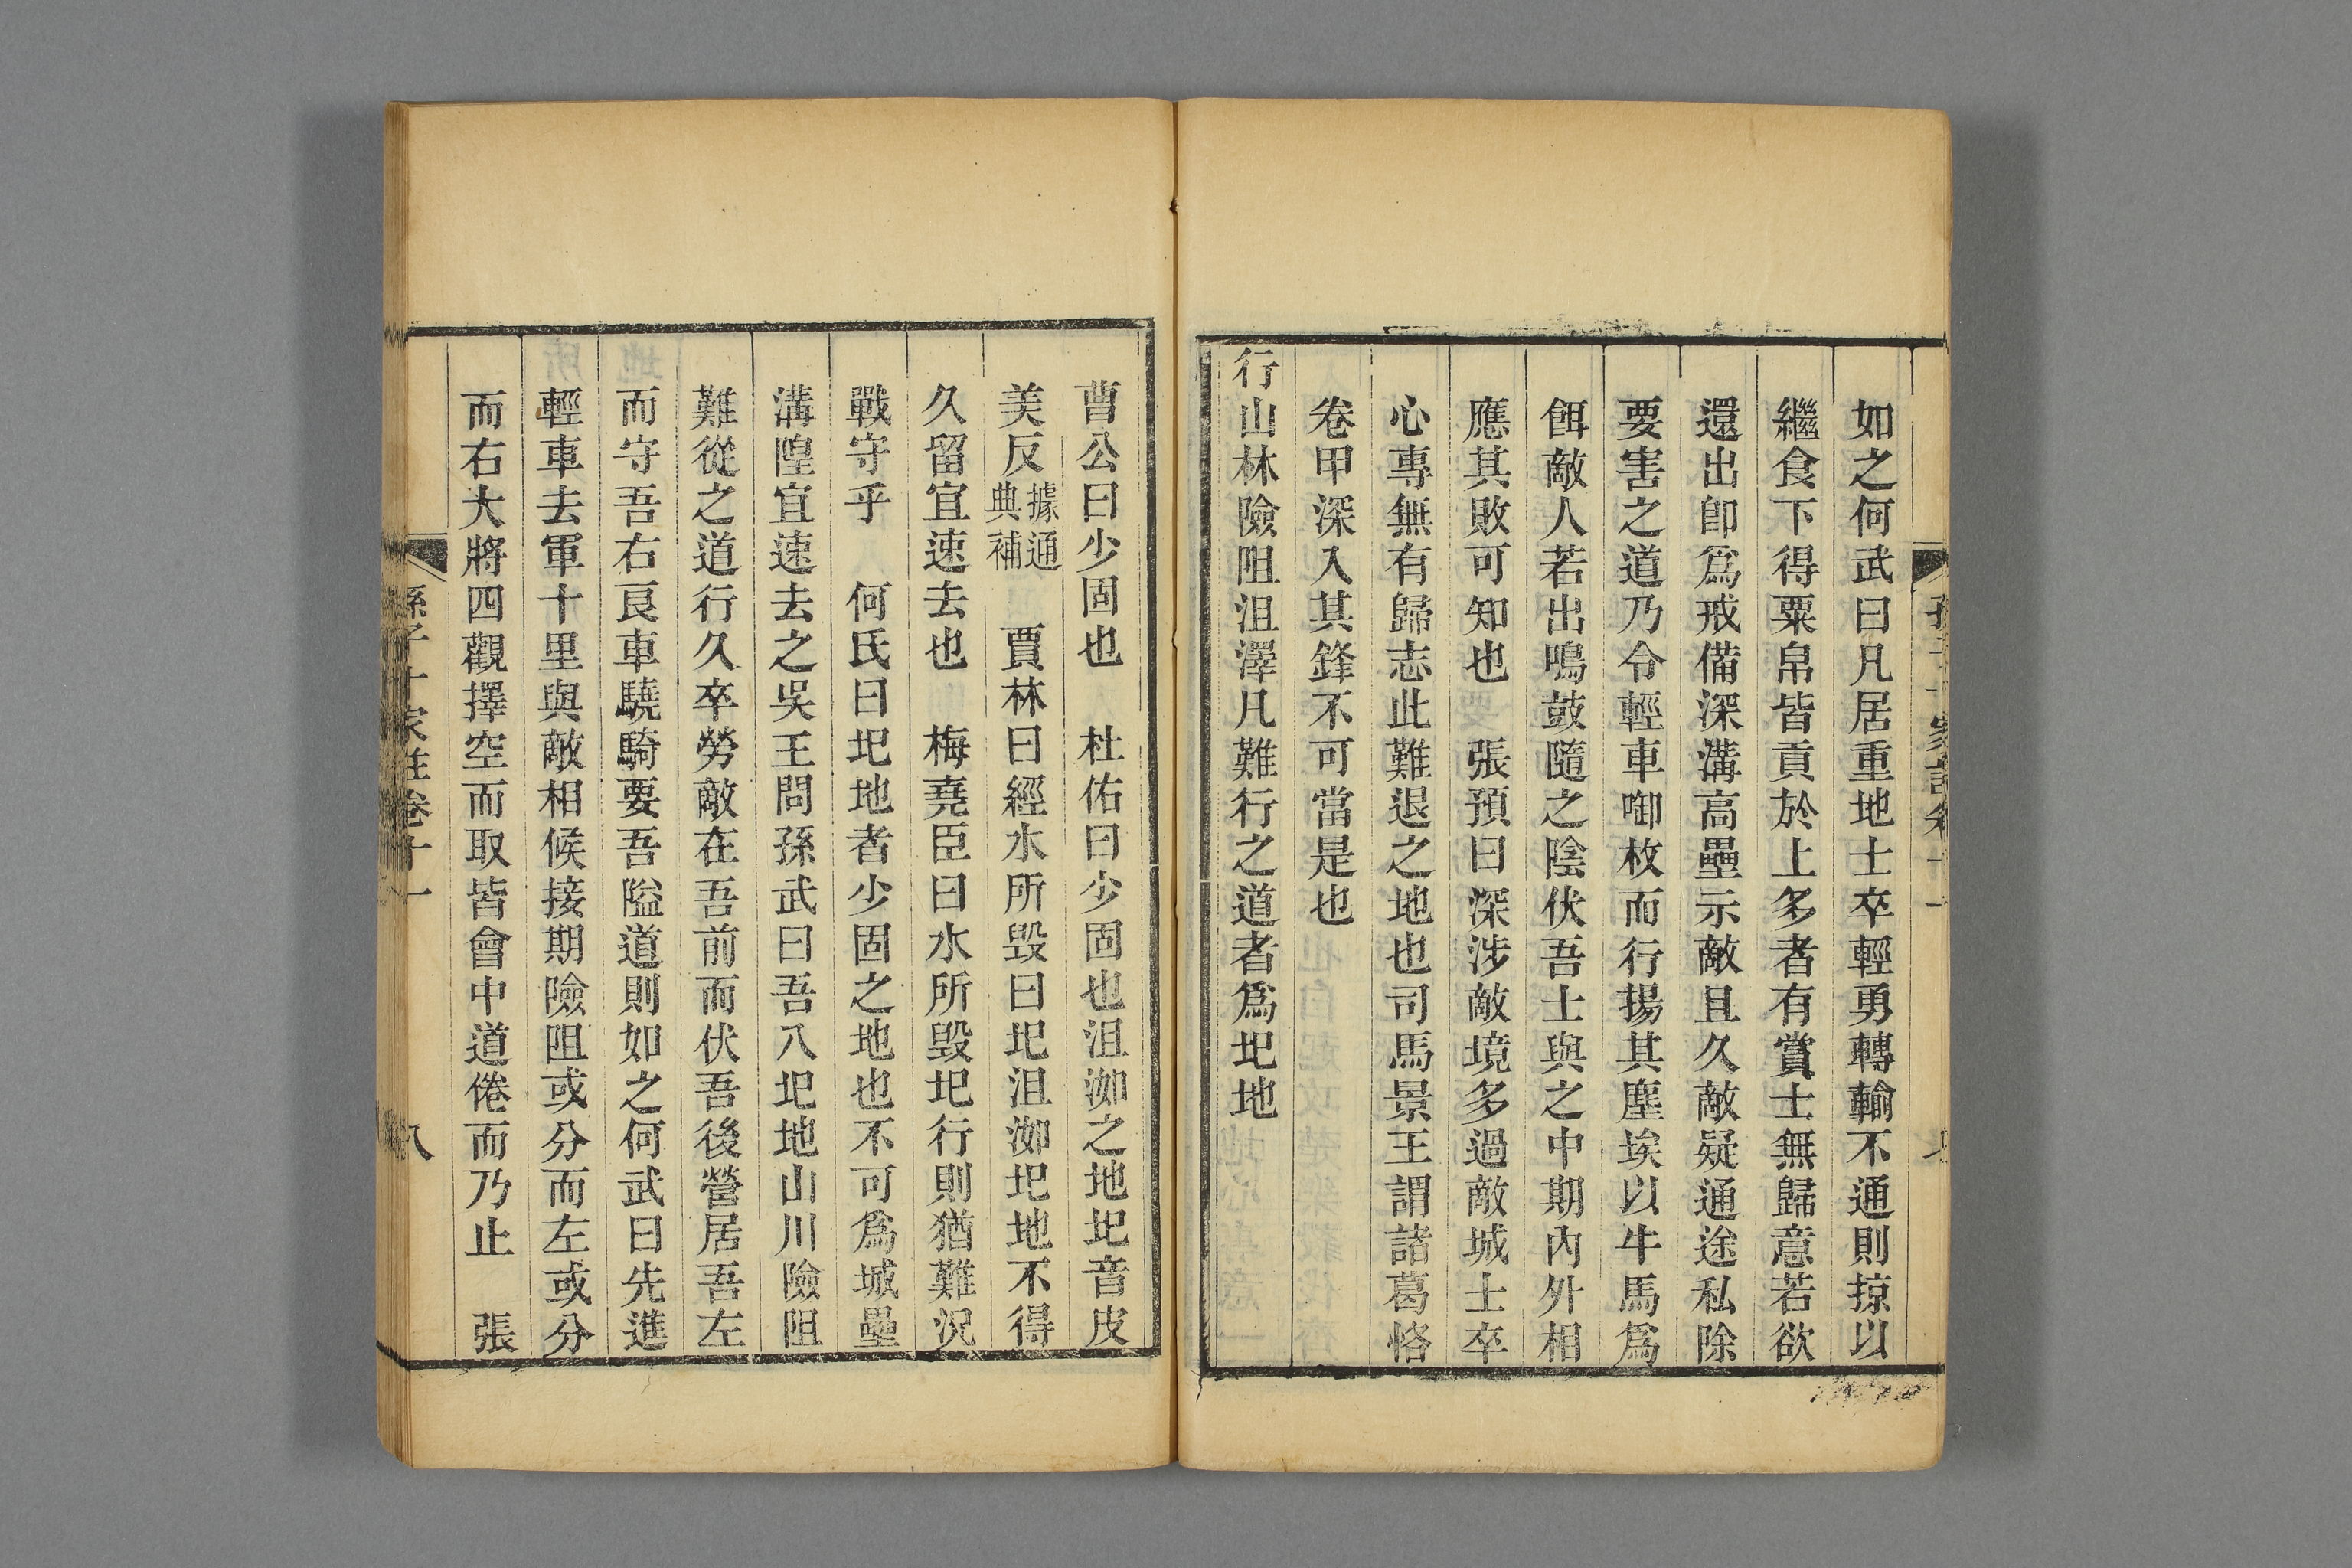 如之何武曰凡居重地士卒輕勇轉輸不通則掠以
繼食下得粟帛皆貢於上多者有賞士無歸意若欲
還出卽爲戒備深溝高壘示敵且久敵疑通途私除
要害之道乃令輕車啣枚而行揚其塵埃以牛馬爲
餌敵人若出鳴鼓隨之陰伏吾士與之中期內外相
應其敗可知也 張預曰深涉敵境多過敵城士卒
心專無有歸志此難退之地也司馬景王謂諸葛恪
卷甲深入其鋒不可當是也
行山林險阻沮澤凡難行之道者爲圯地
曹公曰少固也 杜佑曰少固也沮洳之地圯音皮
美反據通典補 賈林曰經水所毀曰圯沮洳圯地不得
久留宜速去也 梅堯臣曰水所毀圯行則猶難況
戰守乎 何氏曰圯地者少固之地也不可爲城壘
溝隍宜速去之吳王問孫武曰吾入圯地山川險阻
難從之道行久卒勞敵在吾前而伏吾後營居吾左
而守吾右良車驍騎要吾隘道則如之何武曰先進
輕車去軍十里與敵相候接期險阻或分而左或分
而右大將四觀擇空而取皆會中道倦而乃止 張
孫子十家註卷十一 八